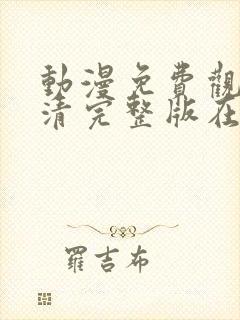 動漫免費觀
清完整版在
羅吉布